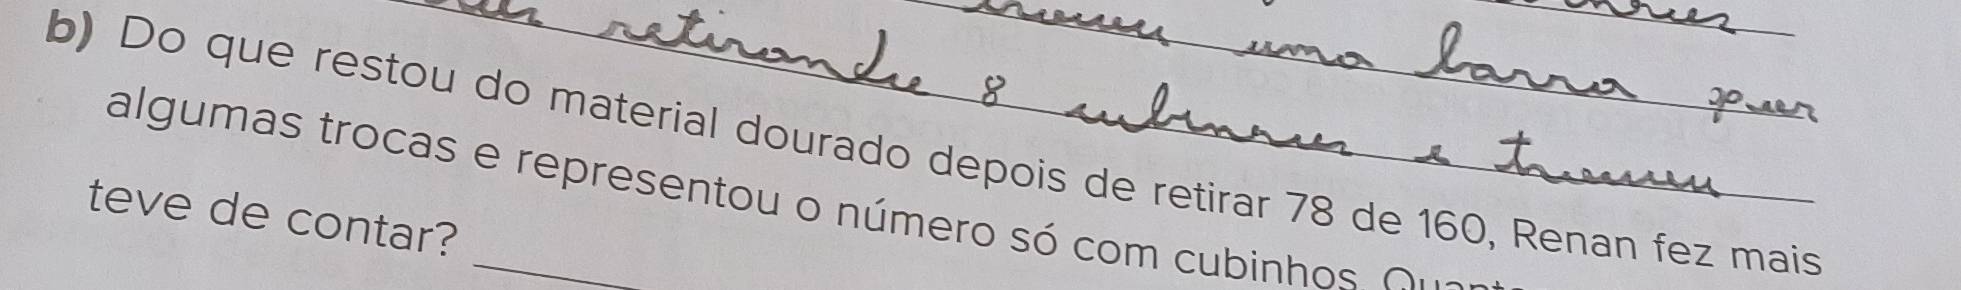 uma barra por
retirando 8 cubinhos e trocou
b) Do que restou do material dourado depois de retirar 78 de 160, Renan fez mais
algumas trocas e representou o número só com cubinhos.
teve de contar?